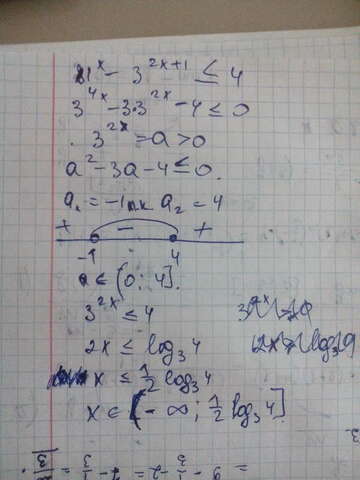 81^x - 3^{2x+1} ≤ 4
3^{4x} - 3·3^{2x} - 4 ≤ 0
3^{2x} = a > 0
a² - 3a - 4 ≤ 0.
a₁ = -1 пк a₂ = 4
+ - +
-1 4
a ∈ (0; 4].
3^{2x} ≤ 4
2x ≤ log₃4
x ≤ 1/2 log₃4
x ∈ (-∞; 1/2 log₃4]